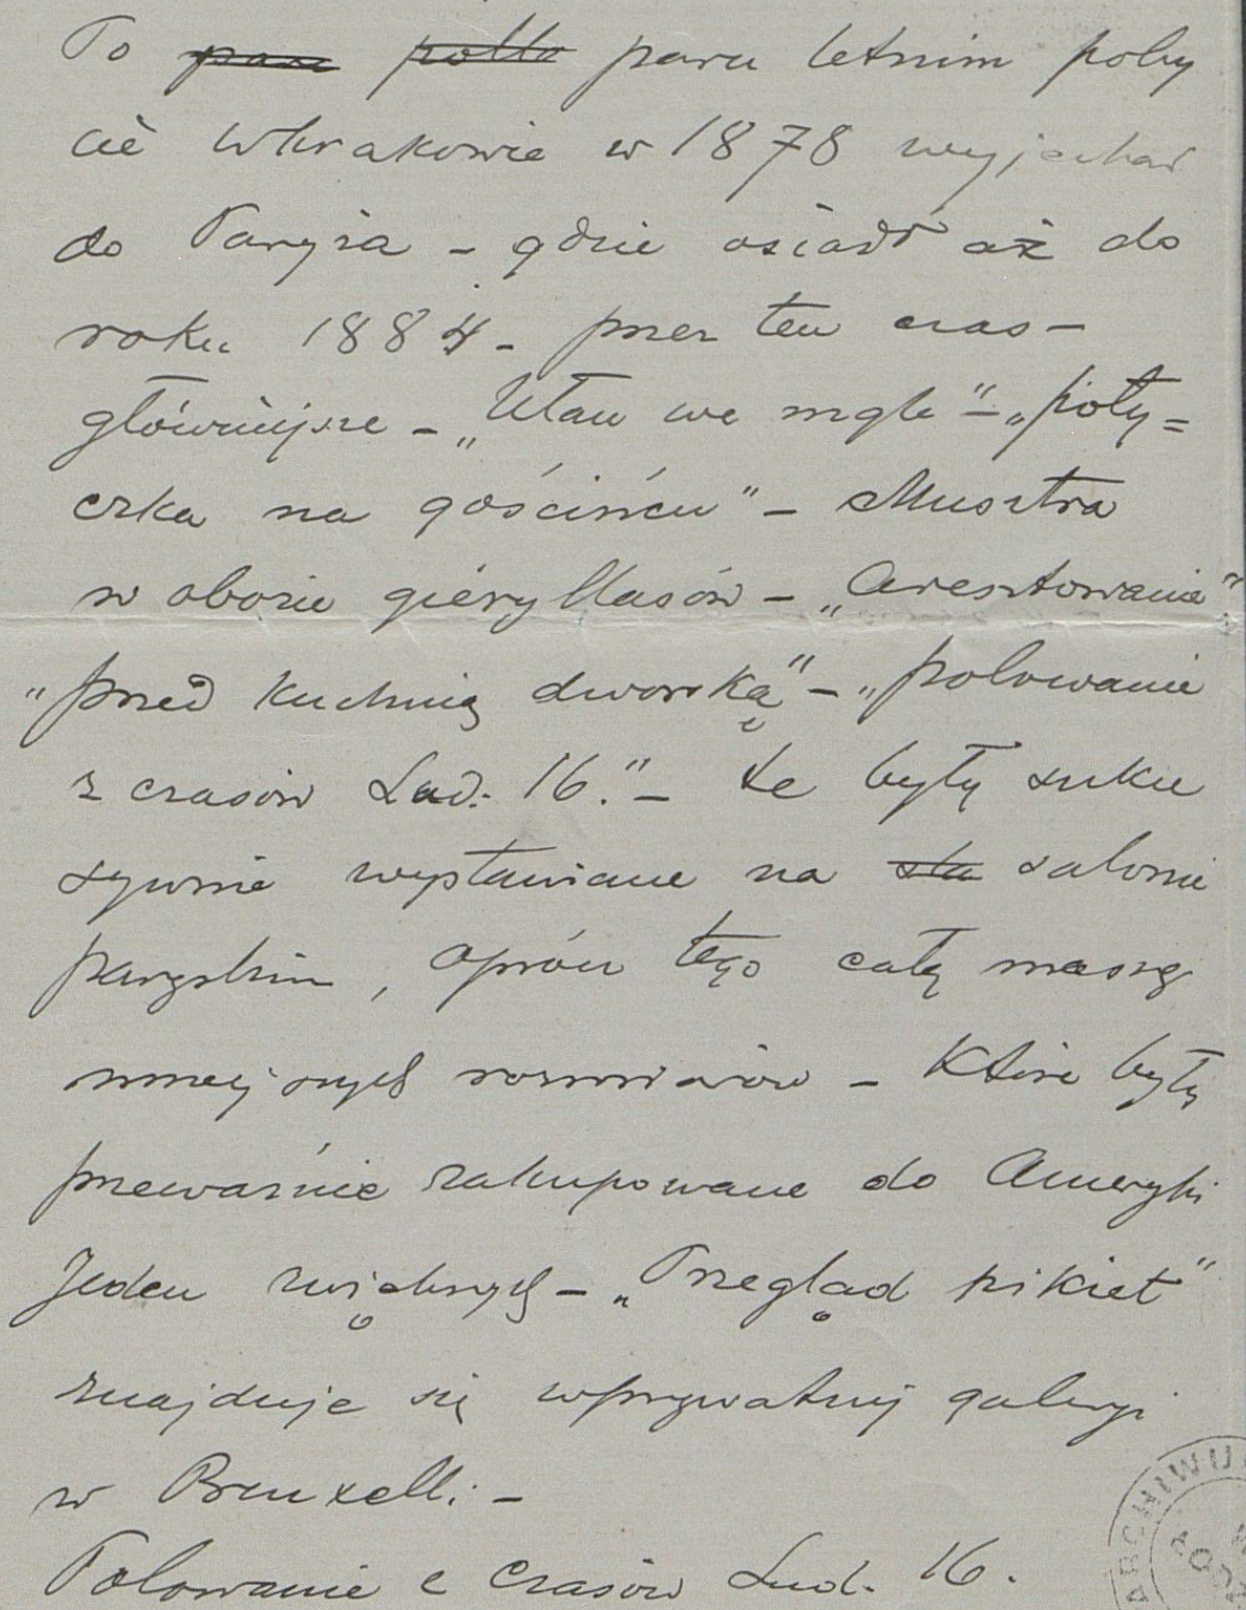 Po ~~paru~~ ~~połto~~ paru letnim poby
cie w Krakowie w 1878 wyjechał
do Paryża – gdzie osiadł aż do
roku 1884 – przez ten czas –
główniejsze – „Ułan we mgle" – „poty=
czka na gościńcu" – Musztra
w obozie gieryllasów – „Aresztowanie"
„przed kuchnią dworską" – „polowanie
z czasów Lud. 16." – te były sukce
sywnie wystawiane na ~~sta~~ salonie
paryskim, oprócz tego całą masę
mniejszych rozmiarów – które były
przeważnie zakupowane do Ameryki
Jeden z większych – „Przegląd pikiet"
znajduje się w prywatnej galeryi
w Bruxelli. –
Polowanie z czasów Lud. 16.
ARCHIWU